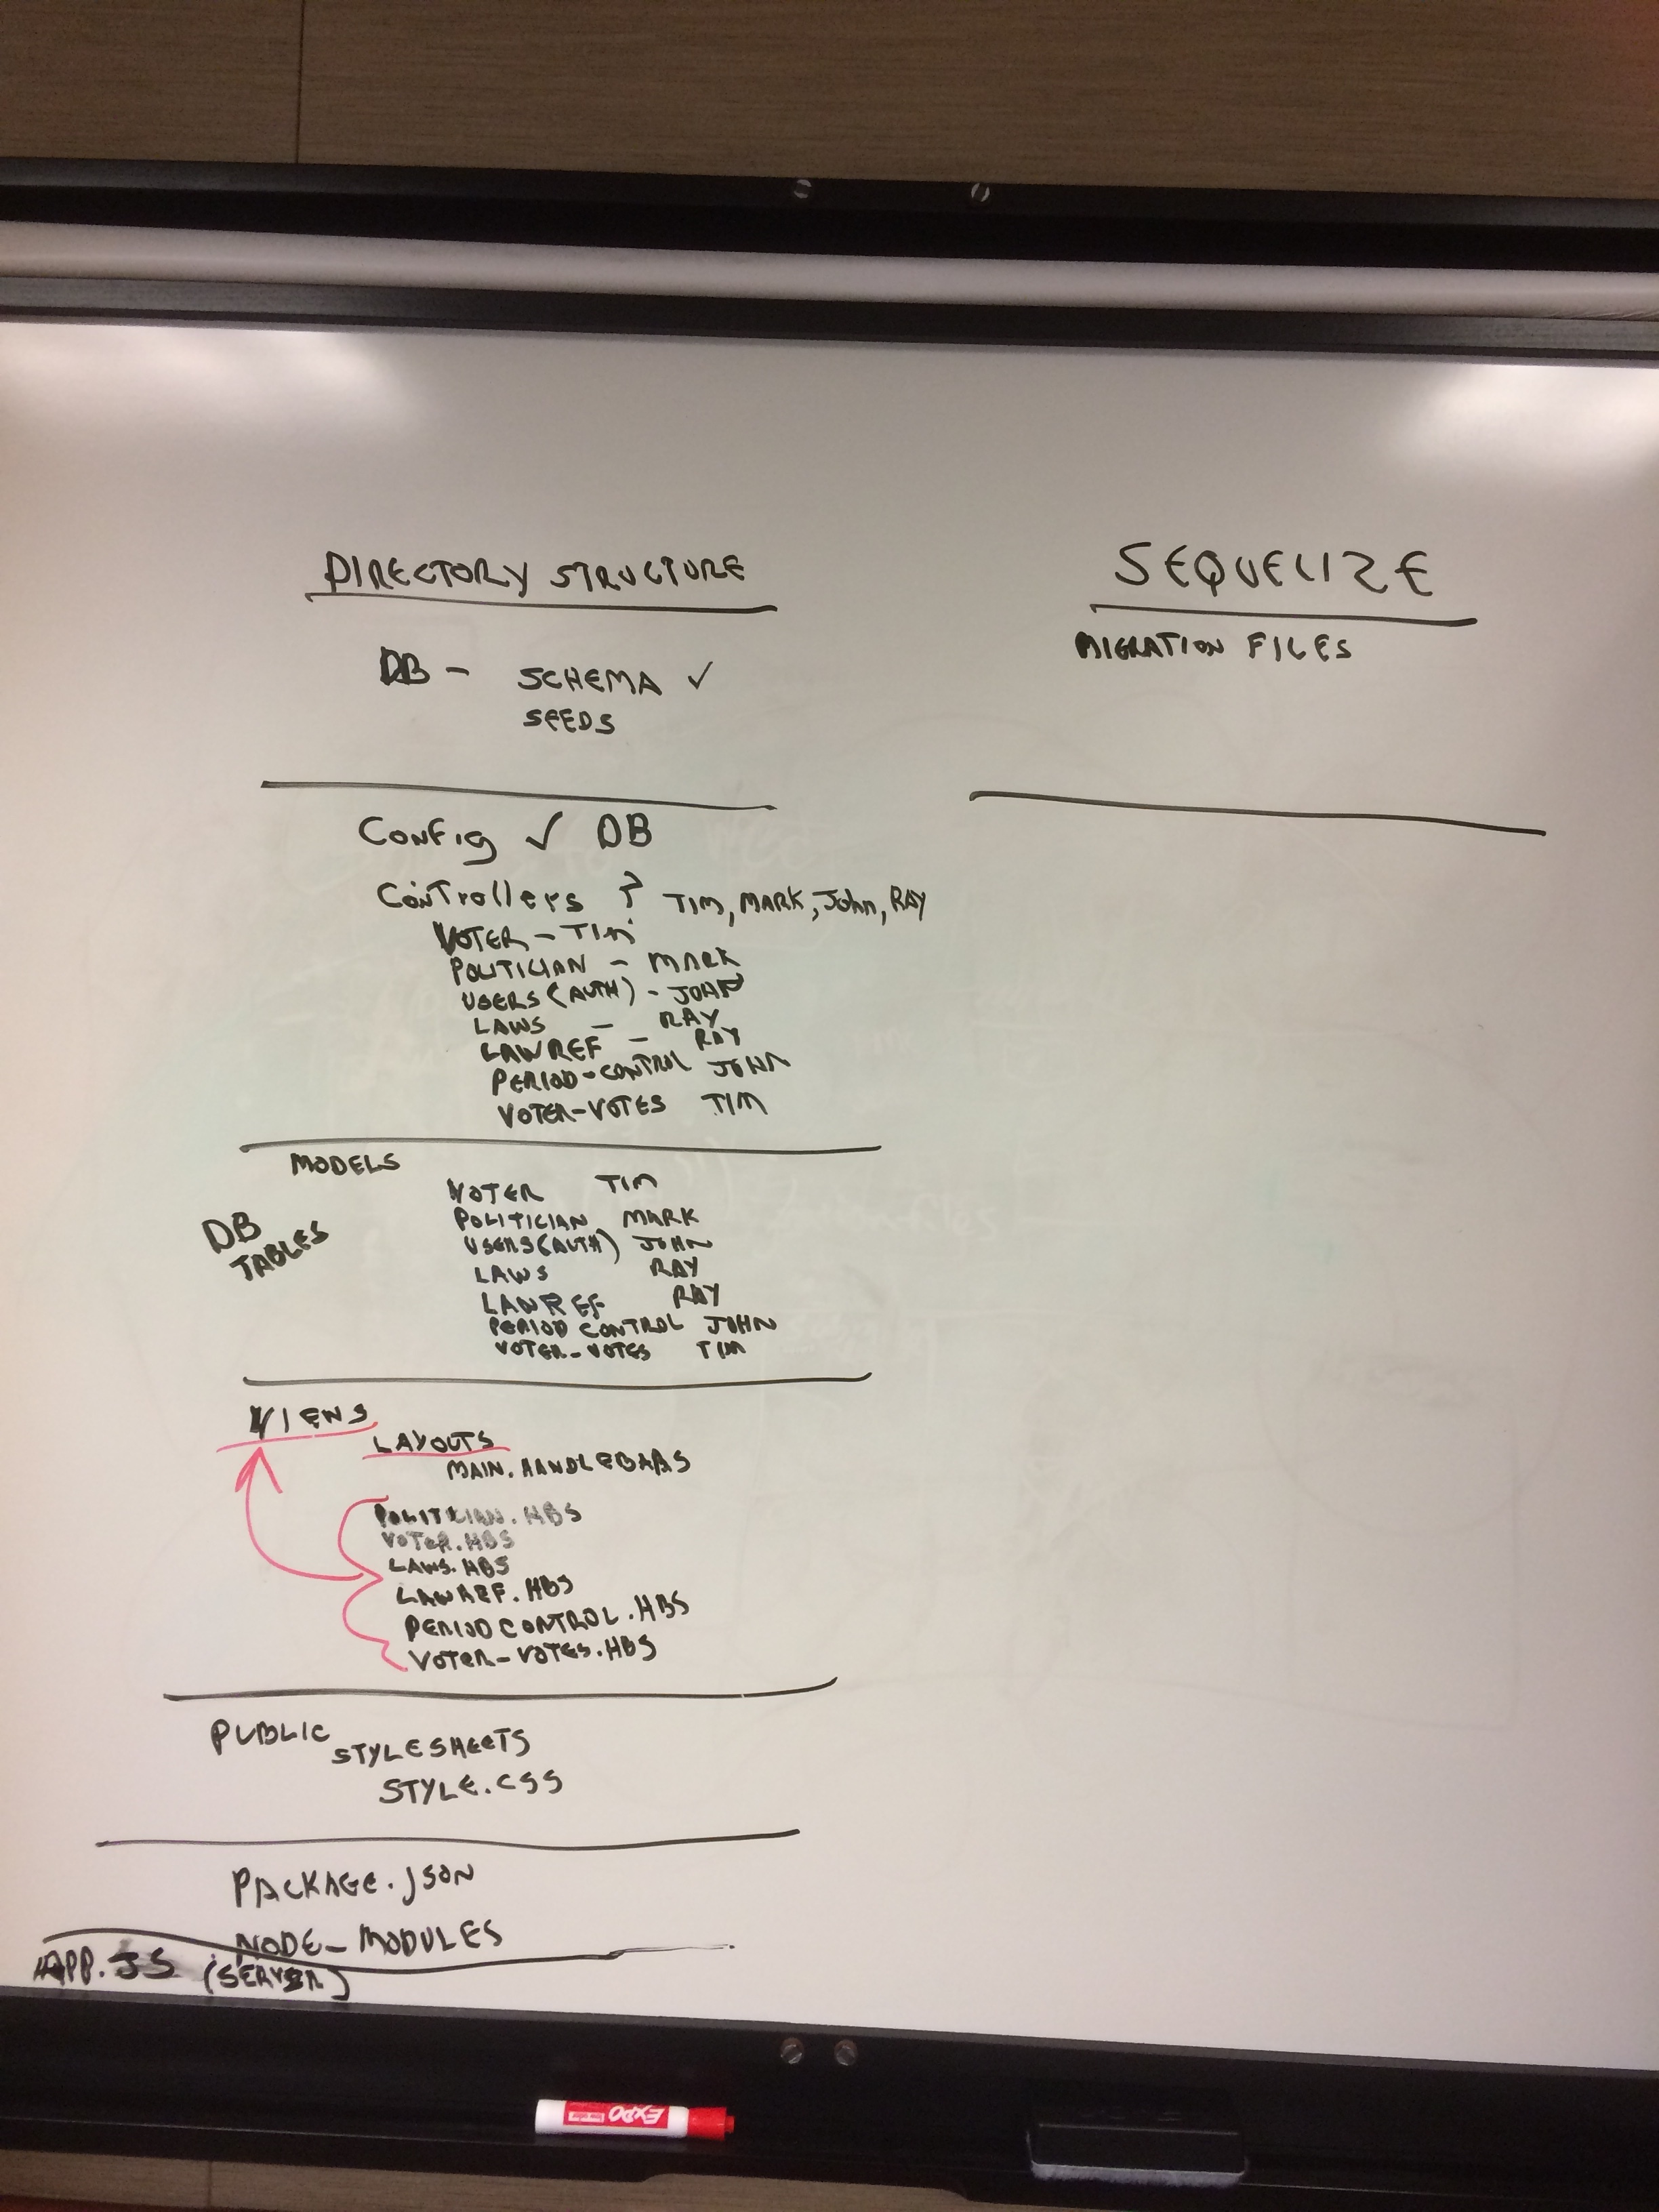 DIRECTORY STRUCTURE
DB - SCHEMA ✓
SEEDS
Config ✓ DB
Controllers ? TIM, MARK, John, RAY
VOTER - TIM
POLITICIAN - MARK
USERS (AUTH) - JOHN
LAWS - RAY
LAWREF - RAY
PERIOD-CONTROL JOHN
VOTER-VOTES TIM
MODELS
DB TABLES
VOTER TIM
POLITICIAN MARK
USERS (AUTH) JOHN
LAWS RAY
LAWREF RAY
PERIOD CONTROL JOHN
VOTER-VOTES TIM
VIEWS
LAYOUTS
MAIN.HANDLEBARS
POLITICIAN.HBS
VOTER.HBS
LAWS.HBS
LAWREF.HBS
PERIODCONTROL.HBS
VOTER-VOTES.HBS
PUBLIC
STYLESHEETS
STYLE.CSS
PACKAGE.JSON
NODE_MODULES
APP.JS (SERVER)
SEQUELIZE
MIGRATION FILES
EXPO